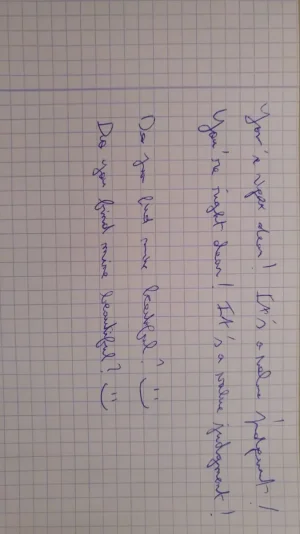 You're right dear! It's a value judgment!
You're right dear! It's a value judgment!
Do you find mine beautiful? :)
Do you find mine beautiful? :)